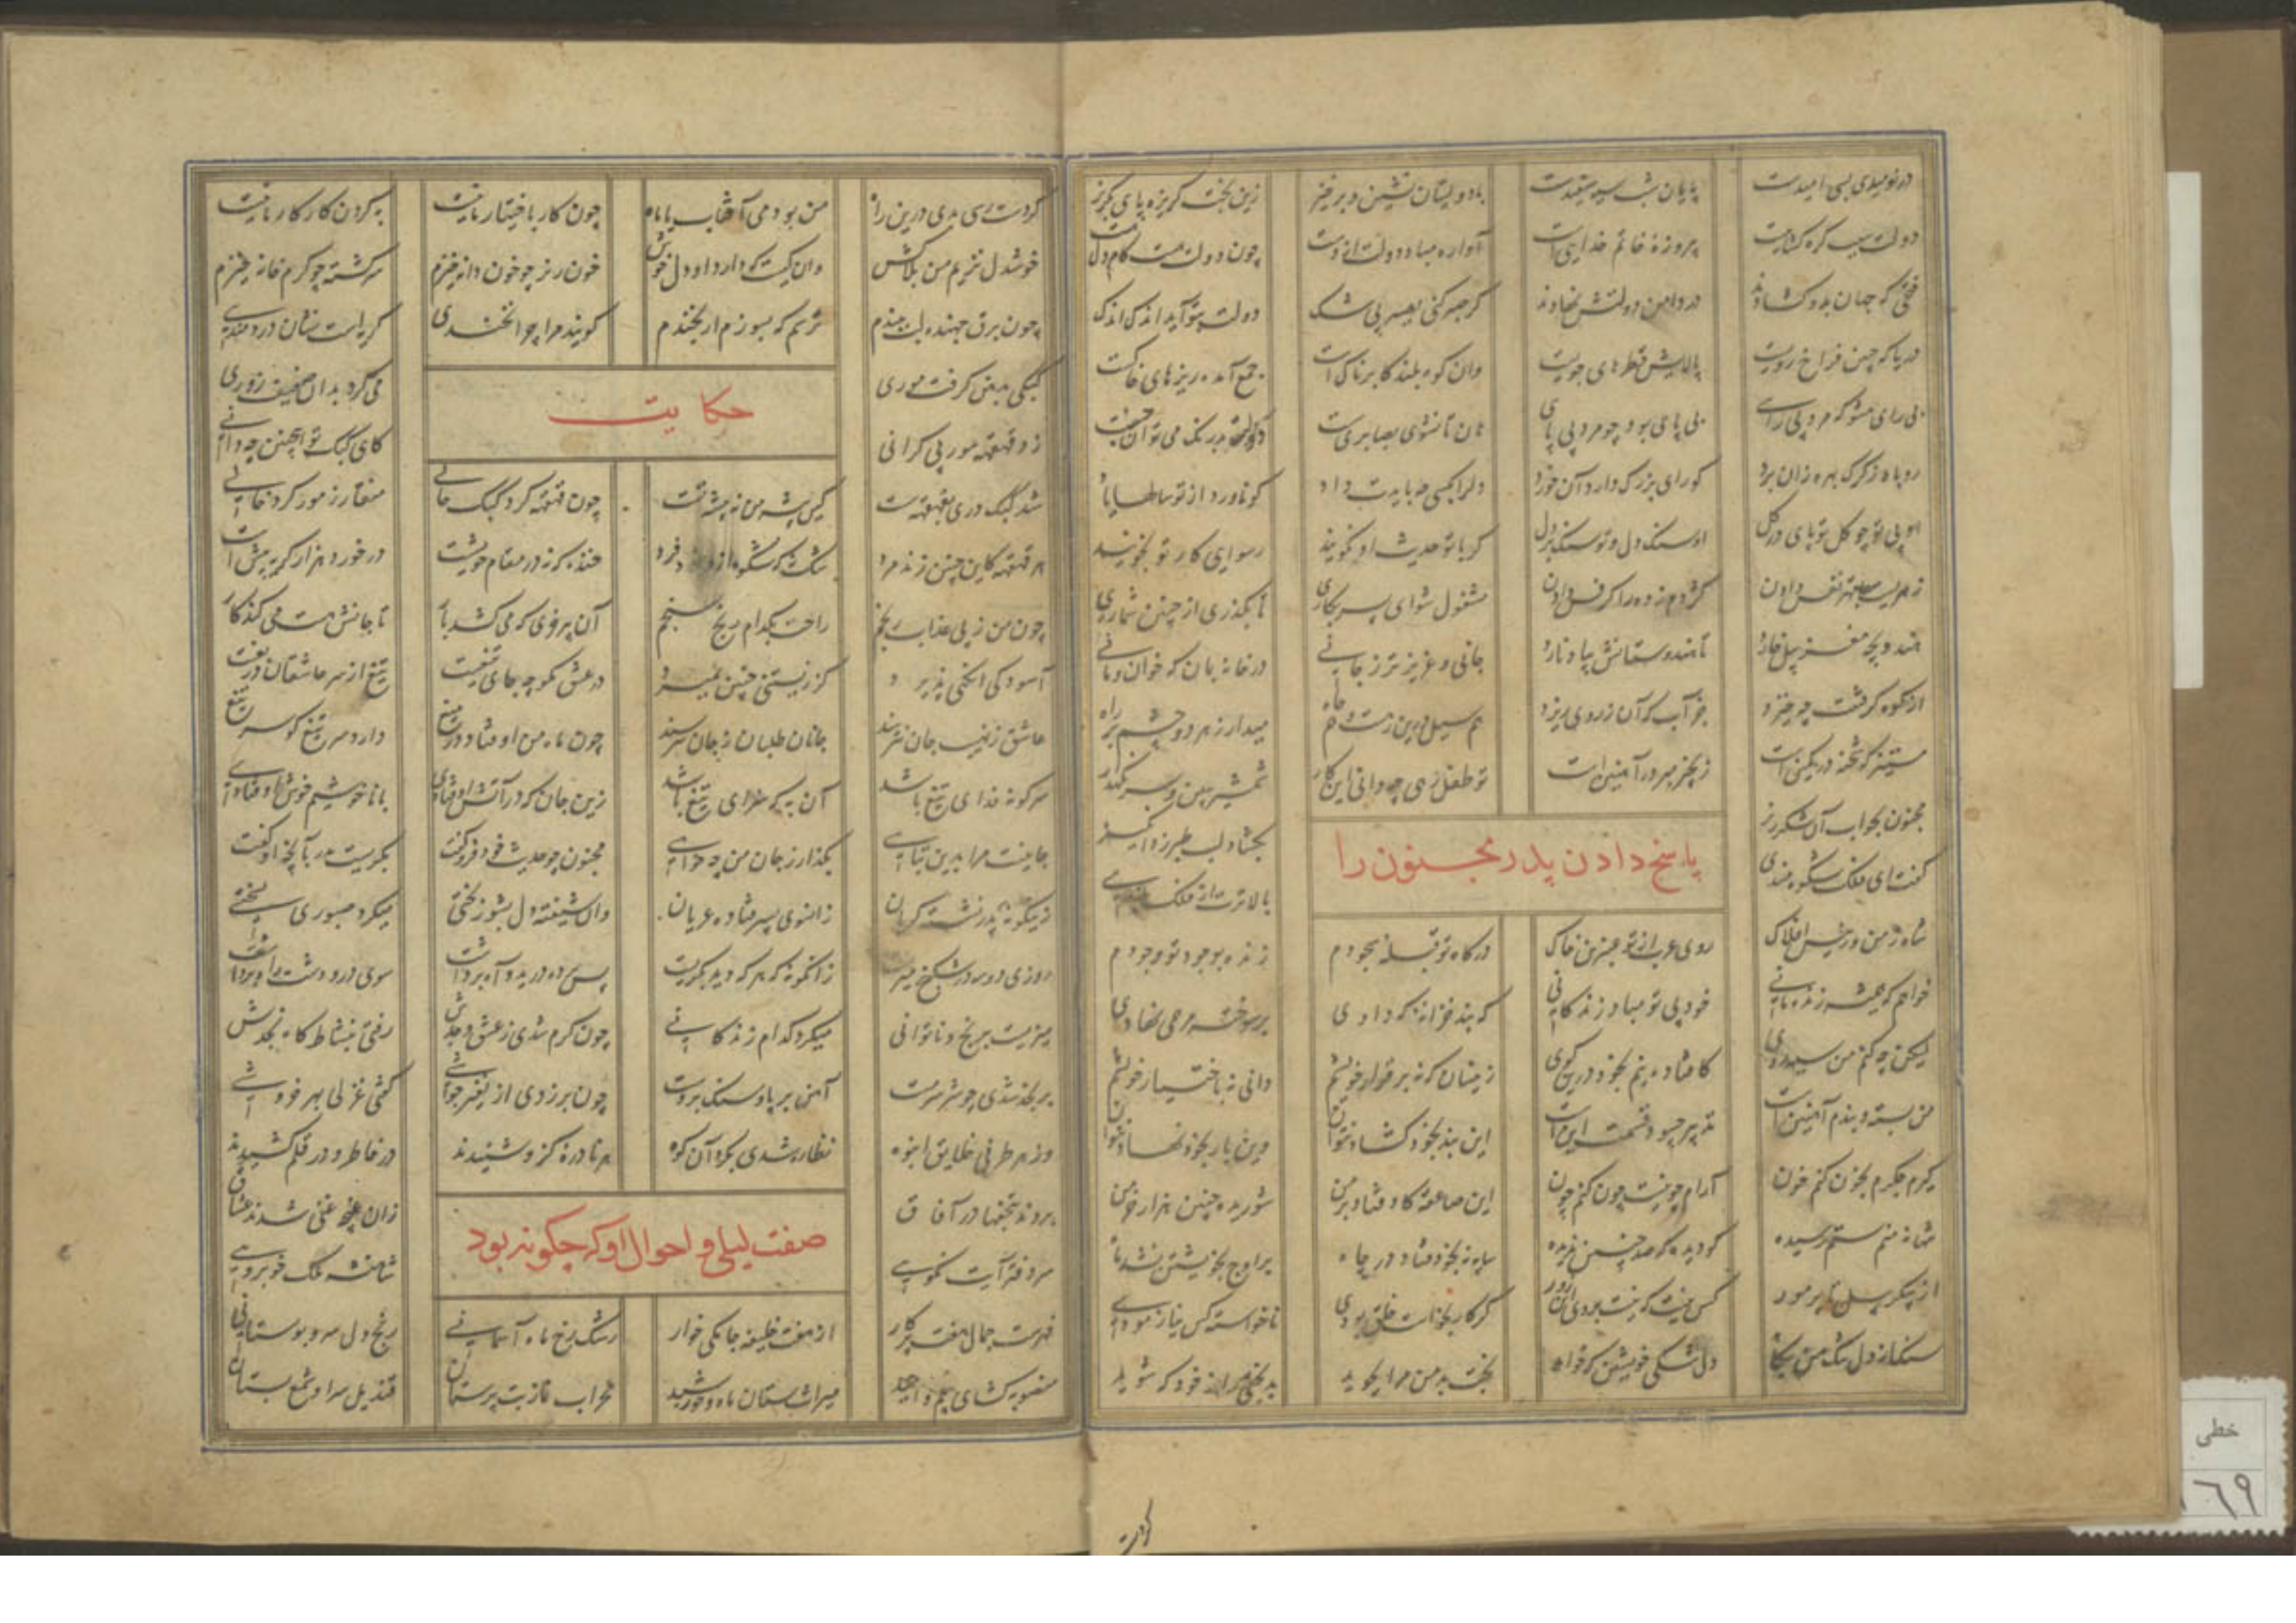 در نومیدی بسی امیدست پایان شب سیه سپیدست با دولتیان نشین و برخیز زین بخت گریزه پای بگریز
دولت سبب گره گشاییست پیروزه خاتم خداییست آواره مباد دولت از دست چون دولت هست کام دل هست
فتحی که جهان بدو گشادند در دامن دولتش نهادند گر صبر کنی بصبر بی شک دولت بتو آید اندک اندک
دریا که چنین فراخ رویست پالایش قطره های جویست وان کوه بلند کابرناکست جمع آمده ریزهای خاکست
بی رای مشو که مرد بی رای بی پای بود چو مرد بی پای هان تا نشوی بصابری سست بدرنگ می توان جست
روباه ز گرگ بهره زان برد کو رای بزرگ دارد آن خرد دل را بکسی چه بایدت داد کو ناورد از تو سالها یاد
او بی تو چو گل تو پای در گل او سنگ دل و تو سنگ بر دل گر با تو حدیث او نگویند رسوایی کار تو بجویند
زهریست بقهر نفس دادن کژدم زده را کرفس دادن مشغول شو ای پسر بکاری تا بگذری از چنین شماری
هندو بچه مغز پیل خارد تا هندوستانش یاد نارد جانی و عزیزتر ز جانی در خانه بمان که خوان و مانی
از کوه گرفتنت چه خیزد جز آب که آن ز روی ریزد هم سیل درین رهست و هم چاه میدار ز هر دو چشم بر راه
مستیز که شحنه در کمین است زنجیر مبر در آهنین است تو طفل رهی چه دانی این کار شمشیر ببین و سر نگهدار
مجنون بجواب آن شکرریز بگشاد لب طبرزد انگیز
پاسخ دادن پدر مجنون را
گفت ای فلک شکوه مندی بالاترت از فلک بلندی
شاه زمن و رئیس افلاک روی عرب از تو عنبرین خاک درگاه تو قبله سجودم زنده بوجود تو وجودم
خواهم که همیشه زنده مانی خود بی تو مباد زندگانی که بند خزانه که دادی بر سوخته مرهمی نهادی
لیکن چه کنم من سیه روی کافتاده نیم بخود درین کوی زینسان که نه بر قرار خویشم دانی نه باختیار خویشم
من بسته و بندم آهنین است تدبیر چه سود قسمت این است این بند بخود گشاد نتوان وین بار بخود نهاد نتوان
گیرم جگرم بخون کنم خون آرام چو نیست چون کنم چون این صاعقه کاوفتاد بر من سوزیده چنین هزار خرمن
تنها نه منم ستم رسیده کو دیده که صد چنین ندیده سایه نه بخود فتاد در چاه بر اوج بخویشتن نشد ماه
از پیکر پیل تا پر مور کس نیست که نیست بر وی این زور گر کار بخواست خلق بودی ناخواسته کس نیازمودی
سنگ از دل تنگ من بکاهد دل تنگی خویشتن که خواهد بخت بد من مرا بجوید بدبختی را ز خود که شوید
گردست
گر دست رسی بدی درین راه من بودمی آفتاب یا ماه چون کار باختیار ما نیست به کردن کار کار ما نیست
خوشدل نزیم من بلاکش وان کیست که دارد او دل خوش خون ریز چو خون دانه خیزم سرگشته چو گرم خانه خیزم
چون برق جهنده لب ببندم ترسم که بسوزم ار بخندم گویند مرا چرا نخندی گریه است نشان دردمندی
کبکی بدهن گرفت موری می کرد بدان ضعیف زوری
حکایت
زد قهقهه مور بی کرانی کای کبک تو اینچنین چه دانی
شد کبک دری ز قهقهه سست کین پیشه من نه پیشه تست چون قهقهه کرد کبک حالی منقار ز مور کرد خالی
هر قهقهه کاین چنین زند مرد شک نیست که شکوه ازو شود فرد خنده که نه در مقام خویش است در خورد هزار گریه بیش است
چون من ز پی عذاب و رنجم راحت بکدام رنج سنجم آن پیر خری که می کشد بار تا جانش هست می کند کار
آسودگی آنگهی پذیرد کز زیستنی چنین بمیرد در عشق مگو چه جای تیغ است تیغ از سر عاشقان دریغ است
عاشق ز نهیب جان نترسد جانان طلبان ز جان نترسد چون ماه من اوفتاد در میغ دارم سر تیغ کو سر تیغ
سر کو نه فدای تیغ باشد آن به که سزای تیغ باشد زین جان که در آتش اوفتادی با ناخوشیم خوش اوفتادی
جانیست مرا بدین تباهی بگذار ز جان من چه خواهی مجنون چو حدیث خود فرو گفت بگریست پدر بآنچه او گفت
زینگونه پدر نشسته گریان زانسوی پسر فتاده عریان وان شیفته دل بشور بختی میکرد صبوری بسختی
روزی دو سه در شکنج میزیست زانگونه که هر که دید بگریست پس پرده درید و آه برداشت سوی در و دشت راه برداشت
میزیست برنج و ناتوانی میمرد کدام زندگانی چون گرم شدی ز عشق وجدش رفتی بنشاط گاه نجدش
بر نجد شدی چو شیر سرمست آهن بر پا و سنگ بر دست چون بر زدی از نفیر جوشی گفتی غزلی بهر خروشی
وز هر طرفی خلایق انبوه نظاره شدی بگرد آن کوه هر نادره کزو شنیدند در خاطر و در قلم کشیدند
بردند بتحفها در آفاق زان غنیه غنی شدند عشاق
صفت لیلی و احوال او که چگونه بود
سر دفتر آیت نکویی شاهنشه ملک خوبرویی
فهرست جمال هفت پرگار از هفت خلیفه جامگی خوار رشک رخ ماه آسمانی رنج دل سرو بوستانی
منصوبه گشای بیم و امید میراث ستان ماه و خورشید محراب نماز بت پرستان قندیل سرا و شمع بستان
خطی
٦٩